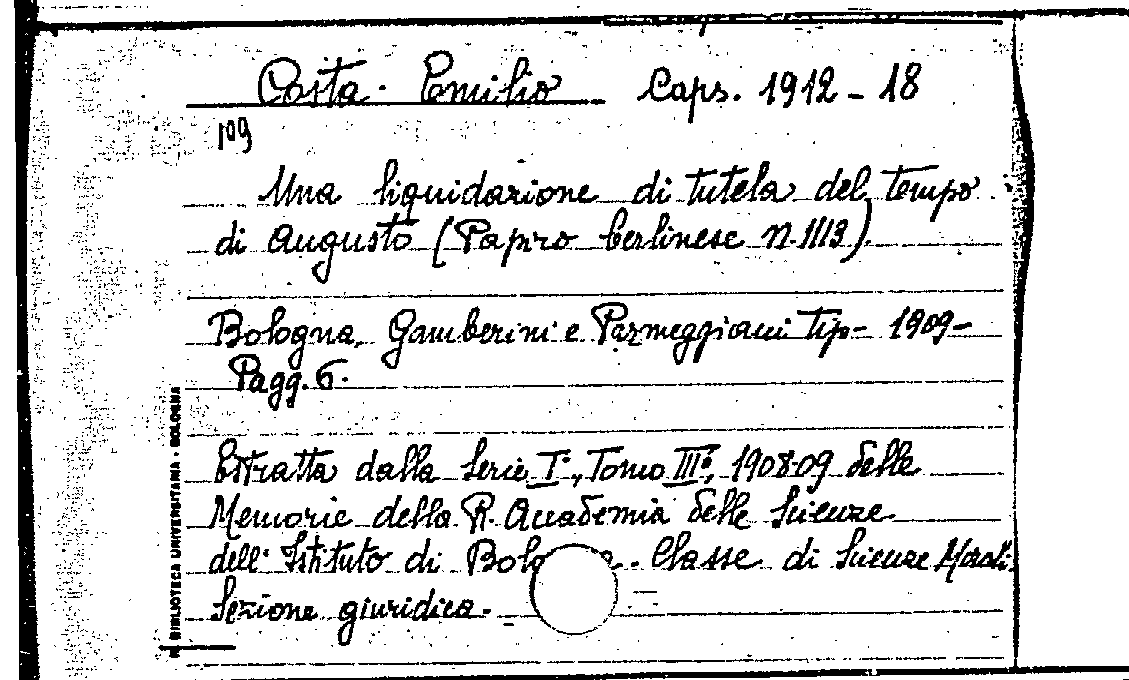 Costa - Emilio Caps. 1912 - 18
109
Una liquidazione di tutela del tempo
di Augusto (Papiro berlinese n. 1113)
Bologna, Gamberini e Parmeggiani Tip - 1909 -
Pagg. 6.
Estratta dalla Serie Iª, Tomo IIIº, 1908-09 delle
Memorie della R. Accademia delle Scienze
dell' Istituto di Bolo . Classe di Scienze Morali.
Sezione giuridica.
BIBLIOTECA UNIVERSITARIA - BOLOGNA